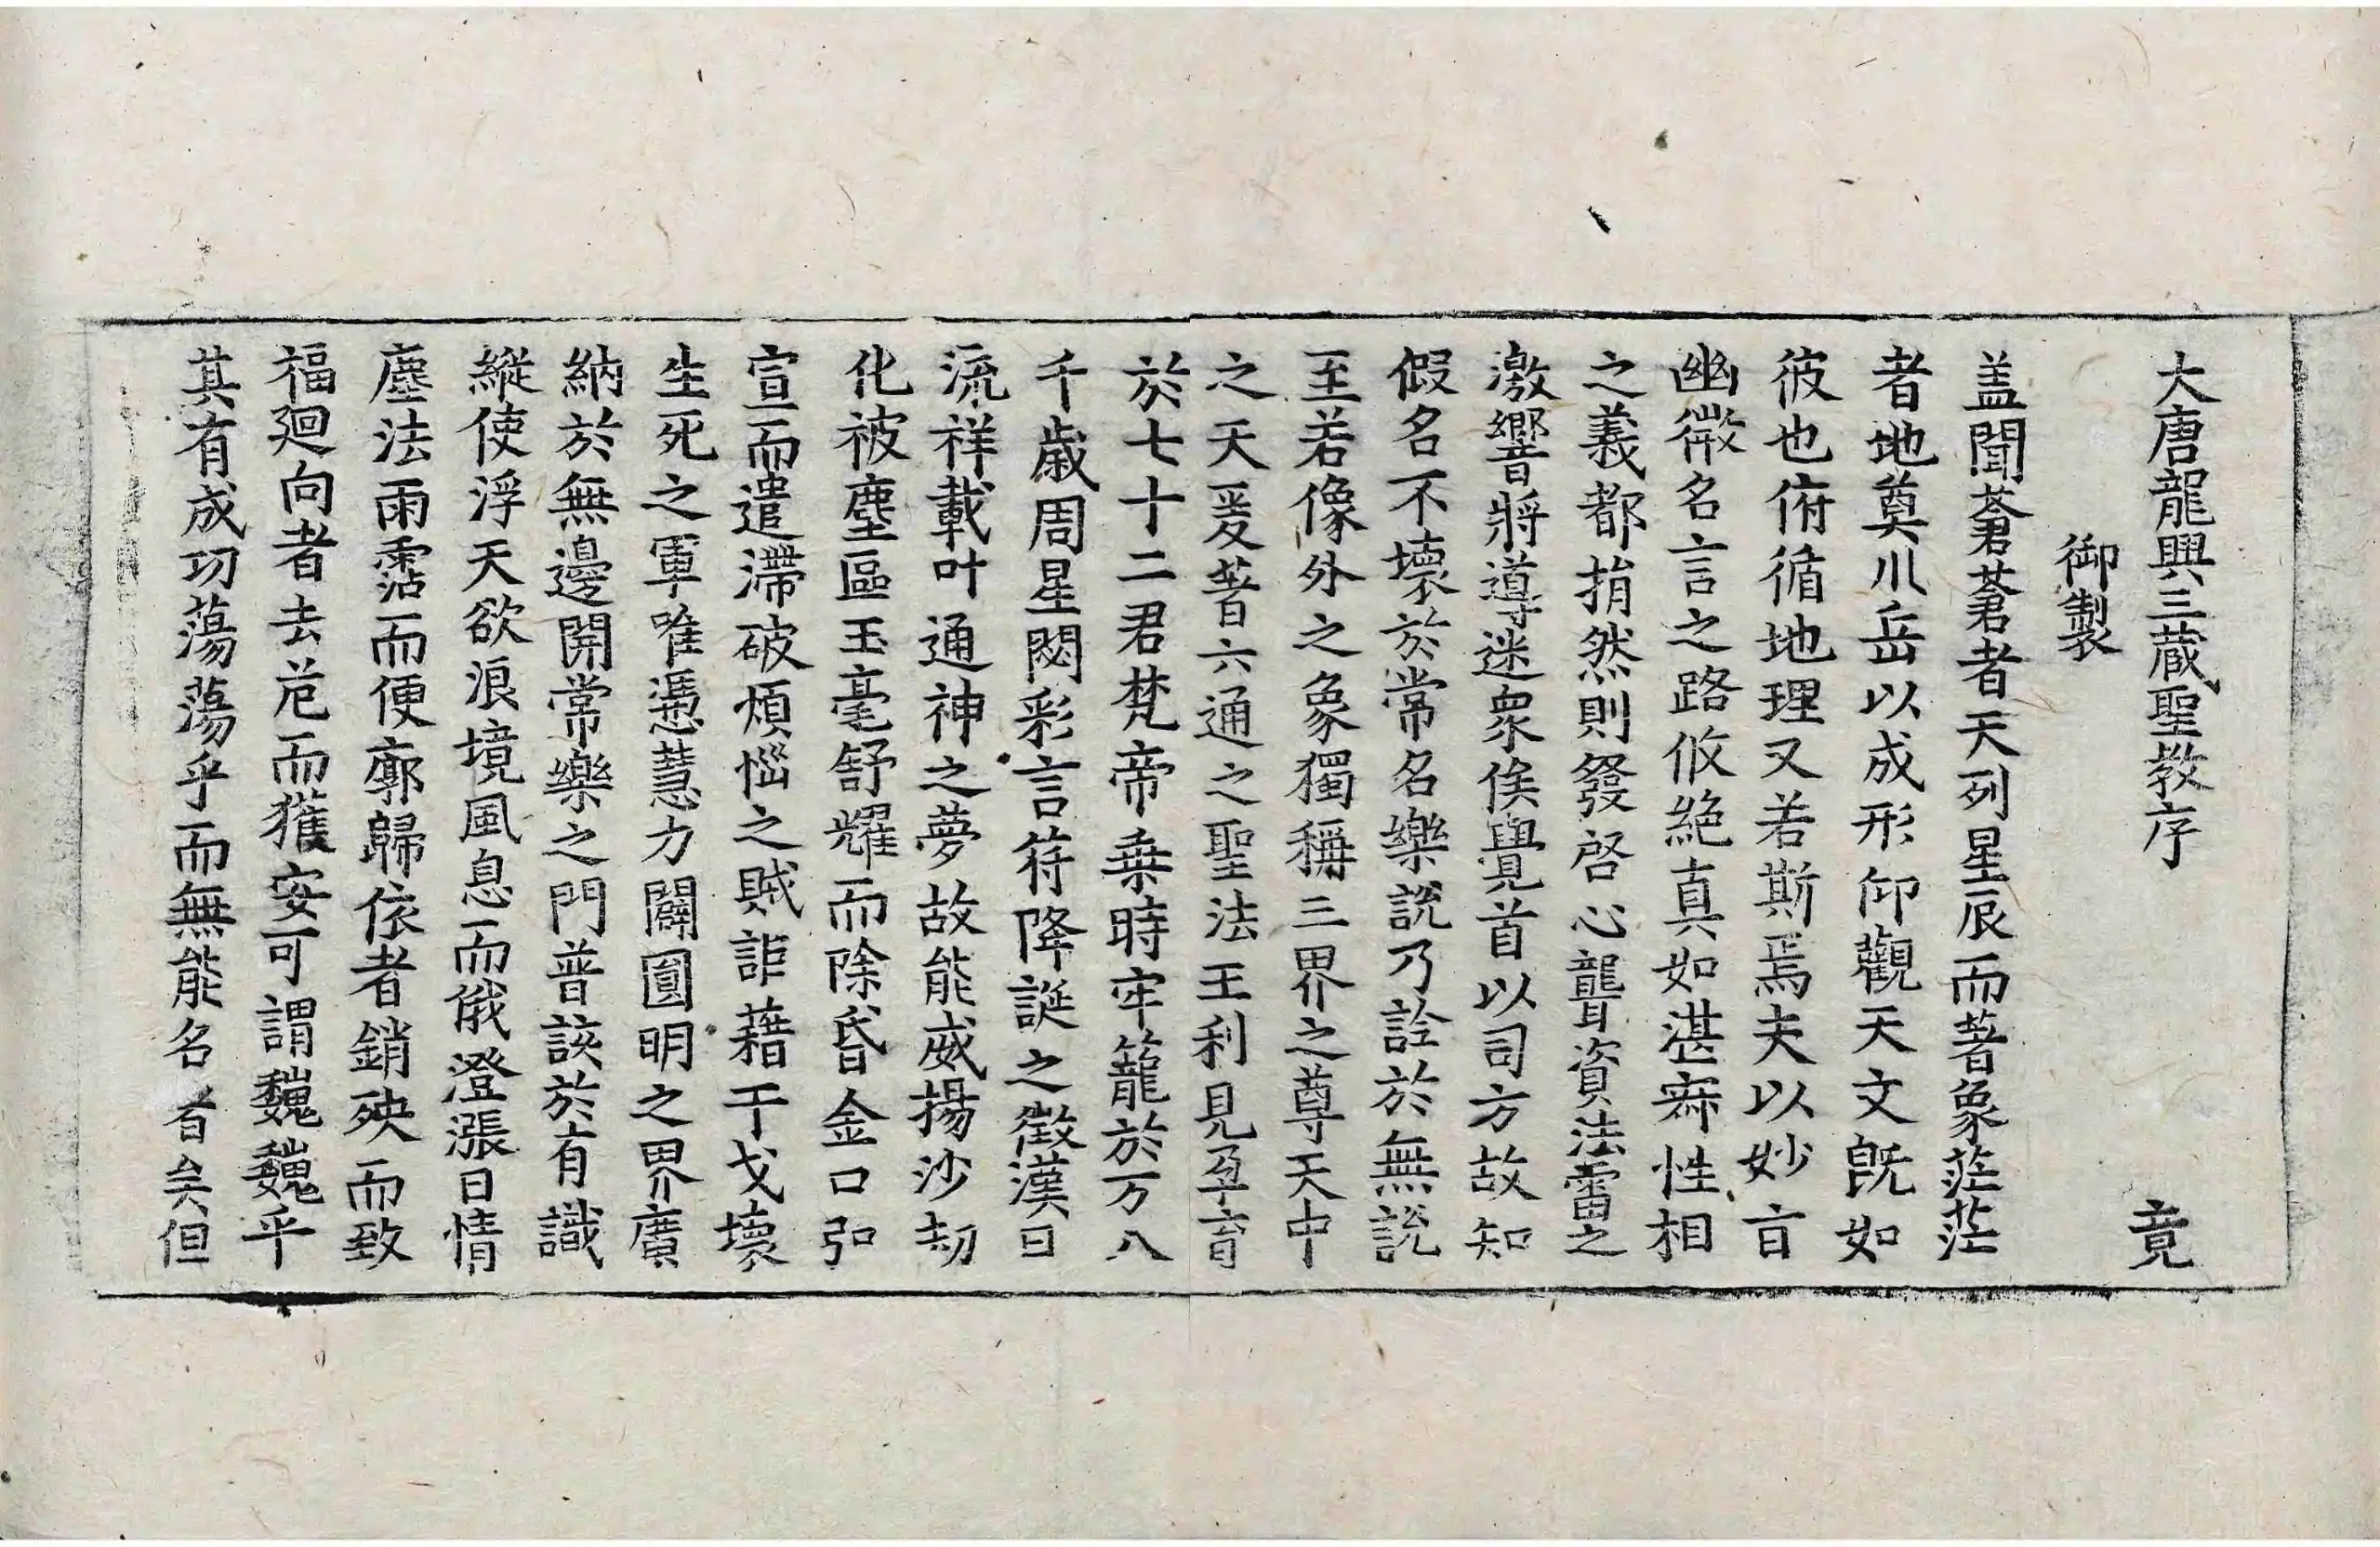 大唐龍興三蔵聖教序 竟
御製
盖聞蒼蒼者天列星辰而著象茫茫
者地奠川岳以成形仰觀天文旣如
彼也俯循地理又若斯焉夫以妙㫖
幽微名言之路攸絶真如湛寂性相
之義都捐然則發啓心聾資法雷之
激響將導迷衆俟覺首以司方故知
假名不壞於常名樂說乃詮於無說
至若像外之象獨稱三界之尊天中
之天爰著六通之聖法王利見孕育
於七十二君梵帝乗時牢籠於万八
千歳周星閟彩言符降誕之徵漢日
流祥載叶通神之夢故能威揚沙劫
化被塵區玉毫舒耀而除昏金口弘
宣而遣滯破煩惱之賊詎藉干戈壞
生死之軍唯憑慧力闢圓明之界廣
納於無邊開常樂之門普該於有識
縱使浮天欲浪境風息而俄澄漲日情
塵法雨霑而便廓歸依者銷殃而致
福廻向者去危而獲安可謂巍巍乎
其有成功蕩蕩乎而無能名者矣但